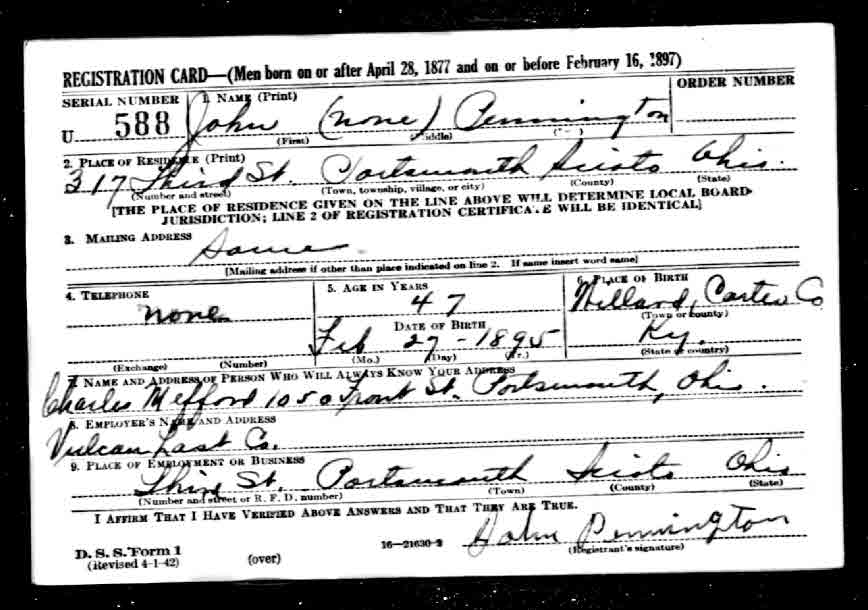 REGISTRATION CARD—(Men born on or after April 28, 1877 and on or before February 16, 1897)
SERIAL NUMBER 1. NAME (Print) ORDER NUMBER
U 588 John (none) Pennington
(First) (Middle)
2. PLACE OF RESIDENCE (Print)
317 Third St. Portsmouth Scioto Ohio.
(Number and street) (Town, township, village, or city) (County) (State)
[THE PLACE OF RESIDENCE GIVEN ON THE LINE ABOVE WILL DETERMINE LOCAL BOARD
JURISDICTION; LINE 2 OF REGISTRATION CERTIFICATE WILL BE IDENTICAL]
3. MAILING ADDRESS
Same
[Mailing address if other than place indicated on line 2. If same insert word same]
4. TELEPHONE 5. AGE IN YEARS 6. PLACE OF BIRTH
none 47 Willard, Carter Co
(Town or county)
DATE OF BIRTH
Feb 27-1895 Ky.
(Exchange) (Number) (Mo.) (Day) (Yr.) (State or country)
7. NAME AND ADDRESS OF PERSON WHO WILL ALWAYS KNOW YOUR ADDRESS
Charles Mefford 1050 Front St. Portsmouth, Ohio.
8. EMPLOYER'S NAME AND ADDRESS
Vulcan Last Co.
9. PLACE OF EMPLOYMENT OR BUSINESS
Third St. Portsmouth Scioto Ohio
(Number and street or R. F. D. number) (Town) (County) (State)
I AFFIRM THAT I HAVE VERIFIED ABOVE ANSWERS AND THAT THEY ARE TRUE.
D. S. S. Form 1
(Revised 4-1-42) (over) 16—21630-2 John Pennington
(Registrant's signature)